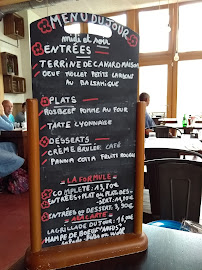 MENU DU JOUR
midi et soir
ENTRÉES
TERRINE DE CANARD MAISON
OEUF MOLLET PETITS LARDONS
AU BALSAMIQUE
PLATS
ROSBEEF POMME AU FOUR
TARTE LYONNAISE
DESSERTS
CRÈME BRULÉE CAFÉ
PANNA COTA FRUITS ROUGES
LA FORMULE
COMPLETE: 
ENTRÉES + PLAT OU PLAT + DES-
SERT
ENTRÉES OU DESSERT
A LA CARTE
LA GRILLADE DU JOUR:
HAMPE DE BOEUF